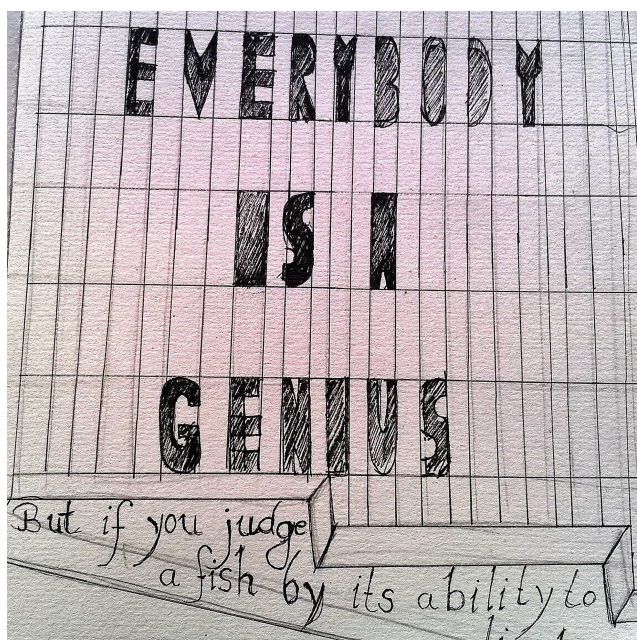 EVERYBODY
IS A
GENIUS
But if you judge
a fish by its ability to